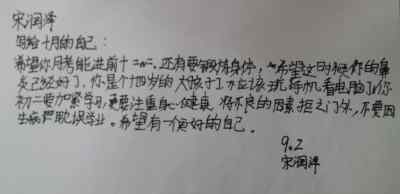 宋润泽
写给十月的自己：
希望你月考能进前十二。还有要锻炼身体，希望这时候你的鼻
炎已经好了，你是个十四岁的大孩子了，不应该玩手机看电脑了，你
初二要加紧学习，更要注重身心健康，将不良的因素拒之门外，不要因
生病而耽误学业。希望有一个好的自己。
9.2
宋润泽